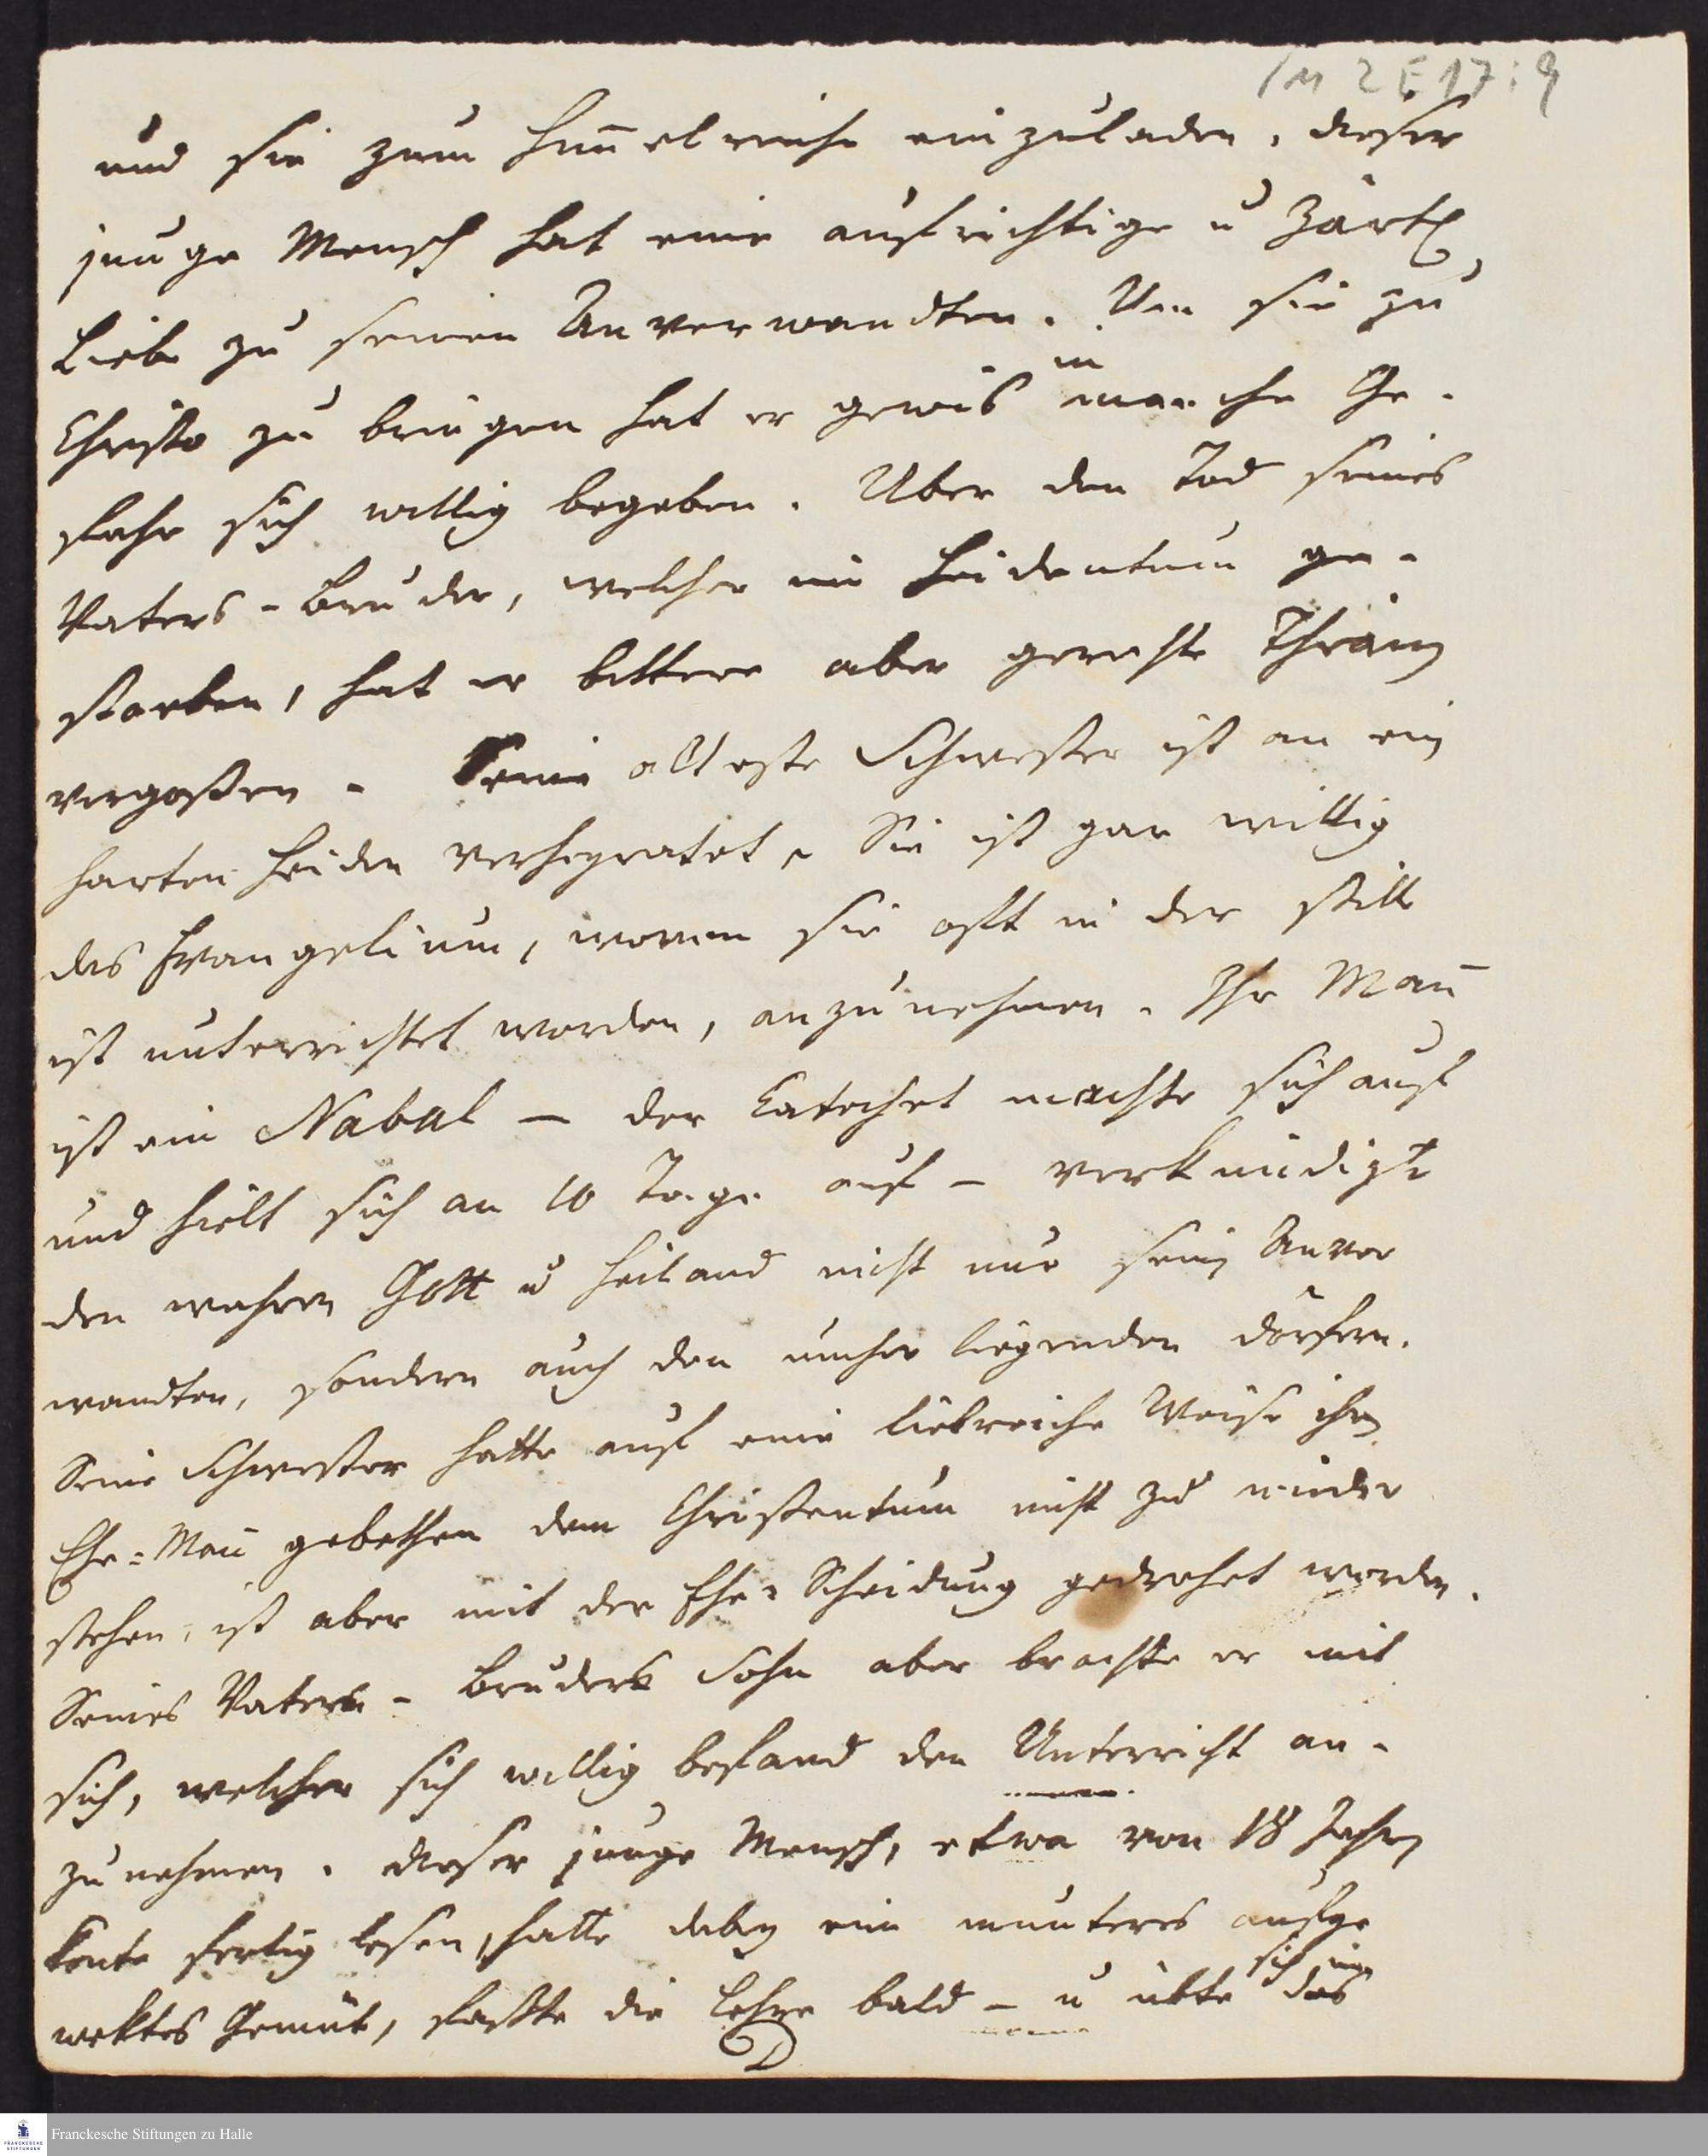 /M 2 E 17:9
und sie zum Him̅elreiche einzuladen. dieser
junge Mensch hat eine aufrichtige u zärtl
Liebe zu seinen Anverwandten. Um sie zu
Christo zu bringen hat er gewis in manche Ge-
fahr sich willig begeben. Uber den Tod seines
Vaters-Bruder, welcher im Heidentum ge-
storben, hat er bittere aber gerechte Thränen
vergoßen. Seine älteste Schwester ist an ein
harten Heiden verheyratet. Sie ist gar willig
das Evangelium, wovon sie oft in der stille
ist unterrichtet worden, anzunehmen. Ihr Man̅
ist ein Nabal – der Catechet machte sich auf
und hielt sich an 10 Tage auf – verkündigte
den wahren Gott u Heiland nicht nur seinen Anver
wandten, sondern auch den umher liegenden dörfern.
Seine Schwester hatte auf eine liebreiche Weise ihren
Ehe=Man̅ gebethen dem Christentum nicht zu wieder
stehen, ist aber mit der Ehe=Scheidung gedrohet worden.
Seines Vaters-Bruders Sohn aber brachte er mit
sich, welcher sich willig befand den Unterricht an-
zunehmen. dieser junge Mensch, etwa von 18 Jahren
konte fertig lesen, hatte dabey ein munteres aufge
wektes Gemüt, faßte die Lehre bald – u übte sich in das
Franckesche Stiftungen zu Halle